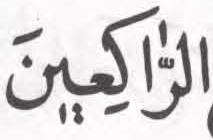 الرَّاكِعِينَ